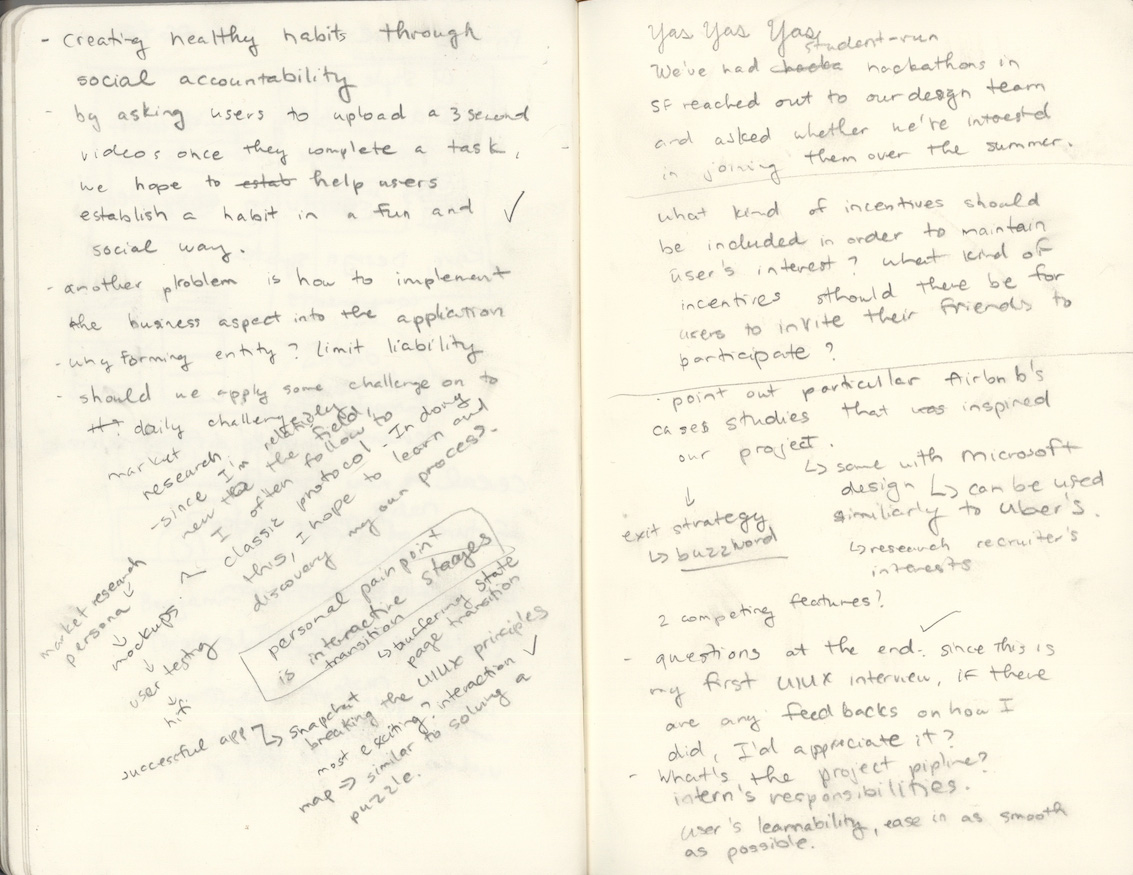 - Creating healthy habits through
social accountability
- by asking users to upload a 3 second
videos once they complete a task,
we hope to estab help users
establish a habit in a fun and ✓
social way.
- another problem is how to implement
the business aspect into the application
- why forming entity? limit liability
- should we apply some challenge on to
daily challenge
market
research
- since I'm relatively
new to the field,
I often follow to
classic protocol - In doing
this, I hope to learn and
discovery my own process.
market research
↓
persona
↓
mockups.
↓
user testing
↓
hifi
personal pain point
is interactive stages
transition
↳ buffering state
page transition
successful app? ↳ snapchat
breaking the UIUX principles
most exciting? interaction ✓
map → similar to solving a
puzzle.
Yas Yas Yas
student-run
We've had hackathons in
SF reached out to our design team
and asked whether we're interested
in joining them over the summer.
what kind of incentives should
be included in order to maintain
user's interest? what kind of
incentives sthould there be for
users to invite their friends to
participate?
· point out particular Airbnb's
cases studies that was inspired
our project.
↳ same with microsoft
design ↳ can be used
similiarly to Uber's.
↳ research recruiter's
interests
↓
exit strategy
↳ buzzword
2 competing features?
✓
- questions at the end. since this is
my first UIUX interview, if there
are any feedbacks on how I
did, I'd appreciate it?
- What's the project pipline?
intern's responsibilities.
user's learnability, ease in as smooth
as possible.